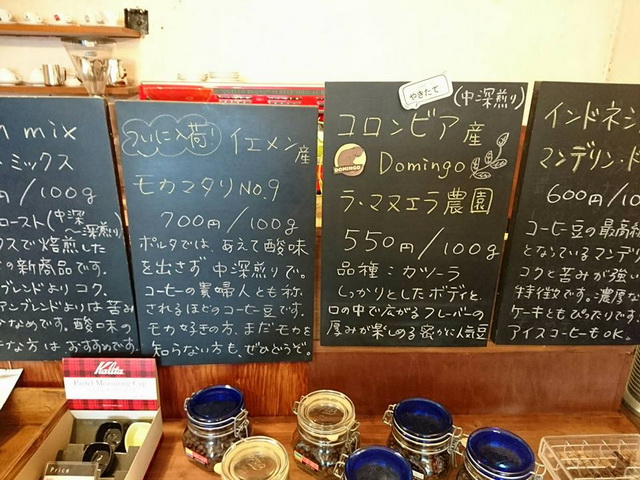 mix
ミックス
円/100g
ロースト(中深
〜深煎り)
スで焙煎した
の新商品です。
ブレンドよりコク、
アンブレンドよりは苦み
かなめです。酸味の
な方は おすすめです。
ついに入荷!
イエメン産
モカマタリ NO.9
700円/100g
ポルタでは、あえて酸味
を出さず 中深煎りで。
コーヒーの貴婦人とも称
されるほどのコーヒー豆です。
モカ好きの方、まだモカを
知らない方も、ぜひどうぞ。
やきたて
(中深煎り)
コロンビア産
DOMINGO
Domingo
ラ・マヌエラ農園
550円/100g
品種:カツーラ
しっかりとしたボディと、
口の中で広がるフレーバーの
厚みが楽しめる密かに人気豆
インドネシ
マンデリン・ド
600円/10
コーヒー豆の最高級
となっているマンデリ
コクと苦みが強い
特徴です。濃厚な
ケーキともぴったりです。
アイスコーヒーもOK。
Kalita
Pastel Measuring Cup
Price